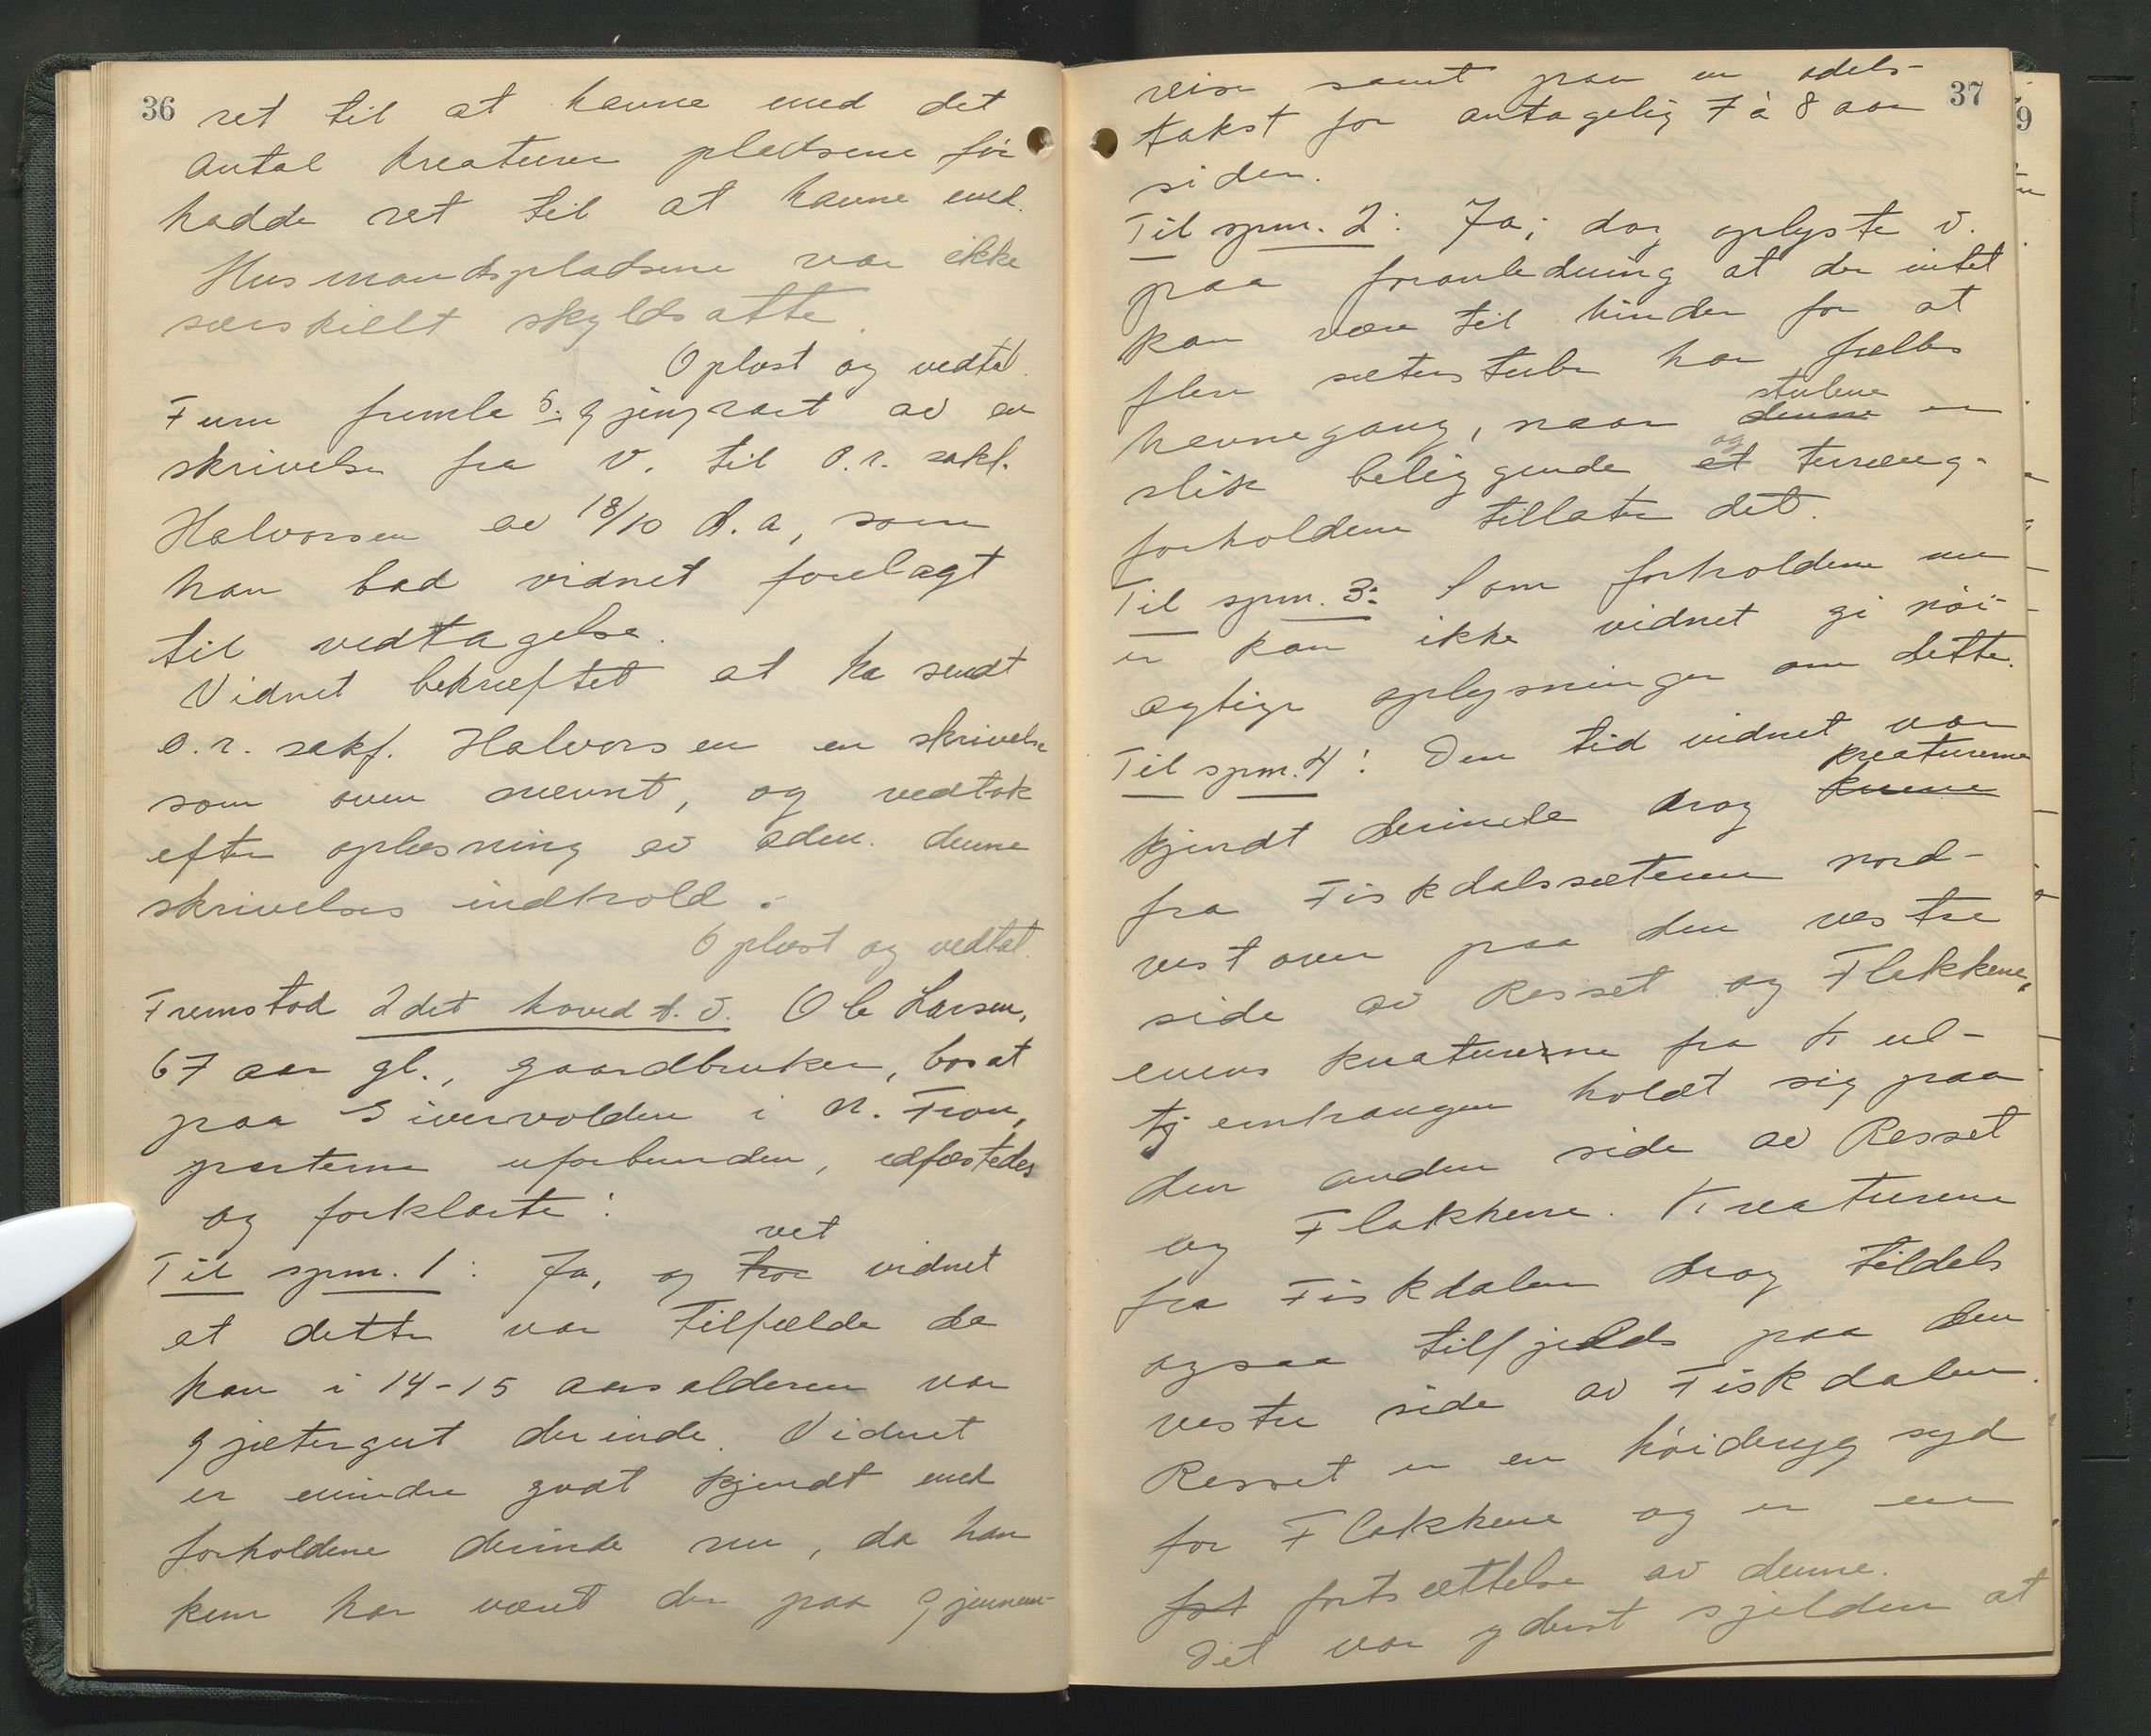 36
ret til at havne med det
antal kreaturer pladsene før
hadde ret til at havne med.
Husmandspladsene var ikke
særskillt skyldsatte.
Oplæst og vedtat.
Furu fremla 5. gjengpart av en
skrivelse fra v. til o.r. sakf.
Halvorsen av 18/10 d.a, som
han bad vidnet forelagt
til vedtagelse.
Vidnet bekræftet at ha sendt
o.r. sakf. Halvorsen en skrivelse
som oven nævnt, og vedtok
efter oplæsning av adm. denne
skrivelses indhold.
Oplæst og vedtat.
Fremstod 2det hoved t. v. Ole Larsen,
67 aar gl., gaardbruker, bosat
paa Sivervolden i N. Fron,
parterne uforbunden, edfæstedes
og forklarte:
vet
Til spm. 1: Ja, og tror vidnet
at dette var tilfælde da
han i 14-15 aarsalderen var
gjætergut derinde. Vidnet
er mindre godt kjendt med
forholdene derinde nu, da han
kun har været der paa gjennem-
37
reise samt paa en odels-
takst for antagelig 7 à 8 aar
siden.
Til spm. 2: Ja; dog oplyste v.
paa foranledning at der intet
kan være til hinder for at
flere sæterstuler har fælles
stulene
havnegang, naar denne er
og
slik beliggende at terræng-
forholdene tillater det.
Til spm. 3: Som forholdene nu
er kan ikke vidnet gi nøi-
agtige oplysninger om dette.
Til spm. 4: Den tid vidnet var
kreaturerne
kjendt derinde drog kuene
fra Fiskdalssæteren nord-
vestover paa den vestre
side av Resset og Flakkene,
mens kreaturerne fra Kul-
tjernhaugen holdt sig paa
den anden side av Resset
og Flakkene. Kreaturene
fra Fiskdalen drog tildels
ogsaa tilfjelds paa den
vestre side av Fiskdalen.
Resset er en høideryg syd
for Flakkene og er en
fot fortsættelse av denne.
Det var yderst sjelden at